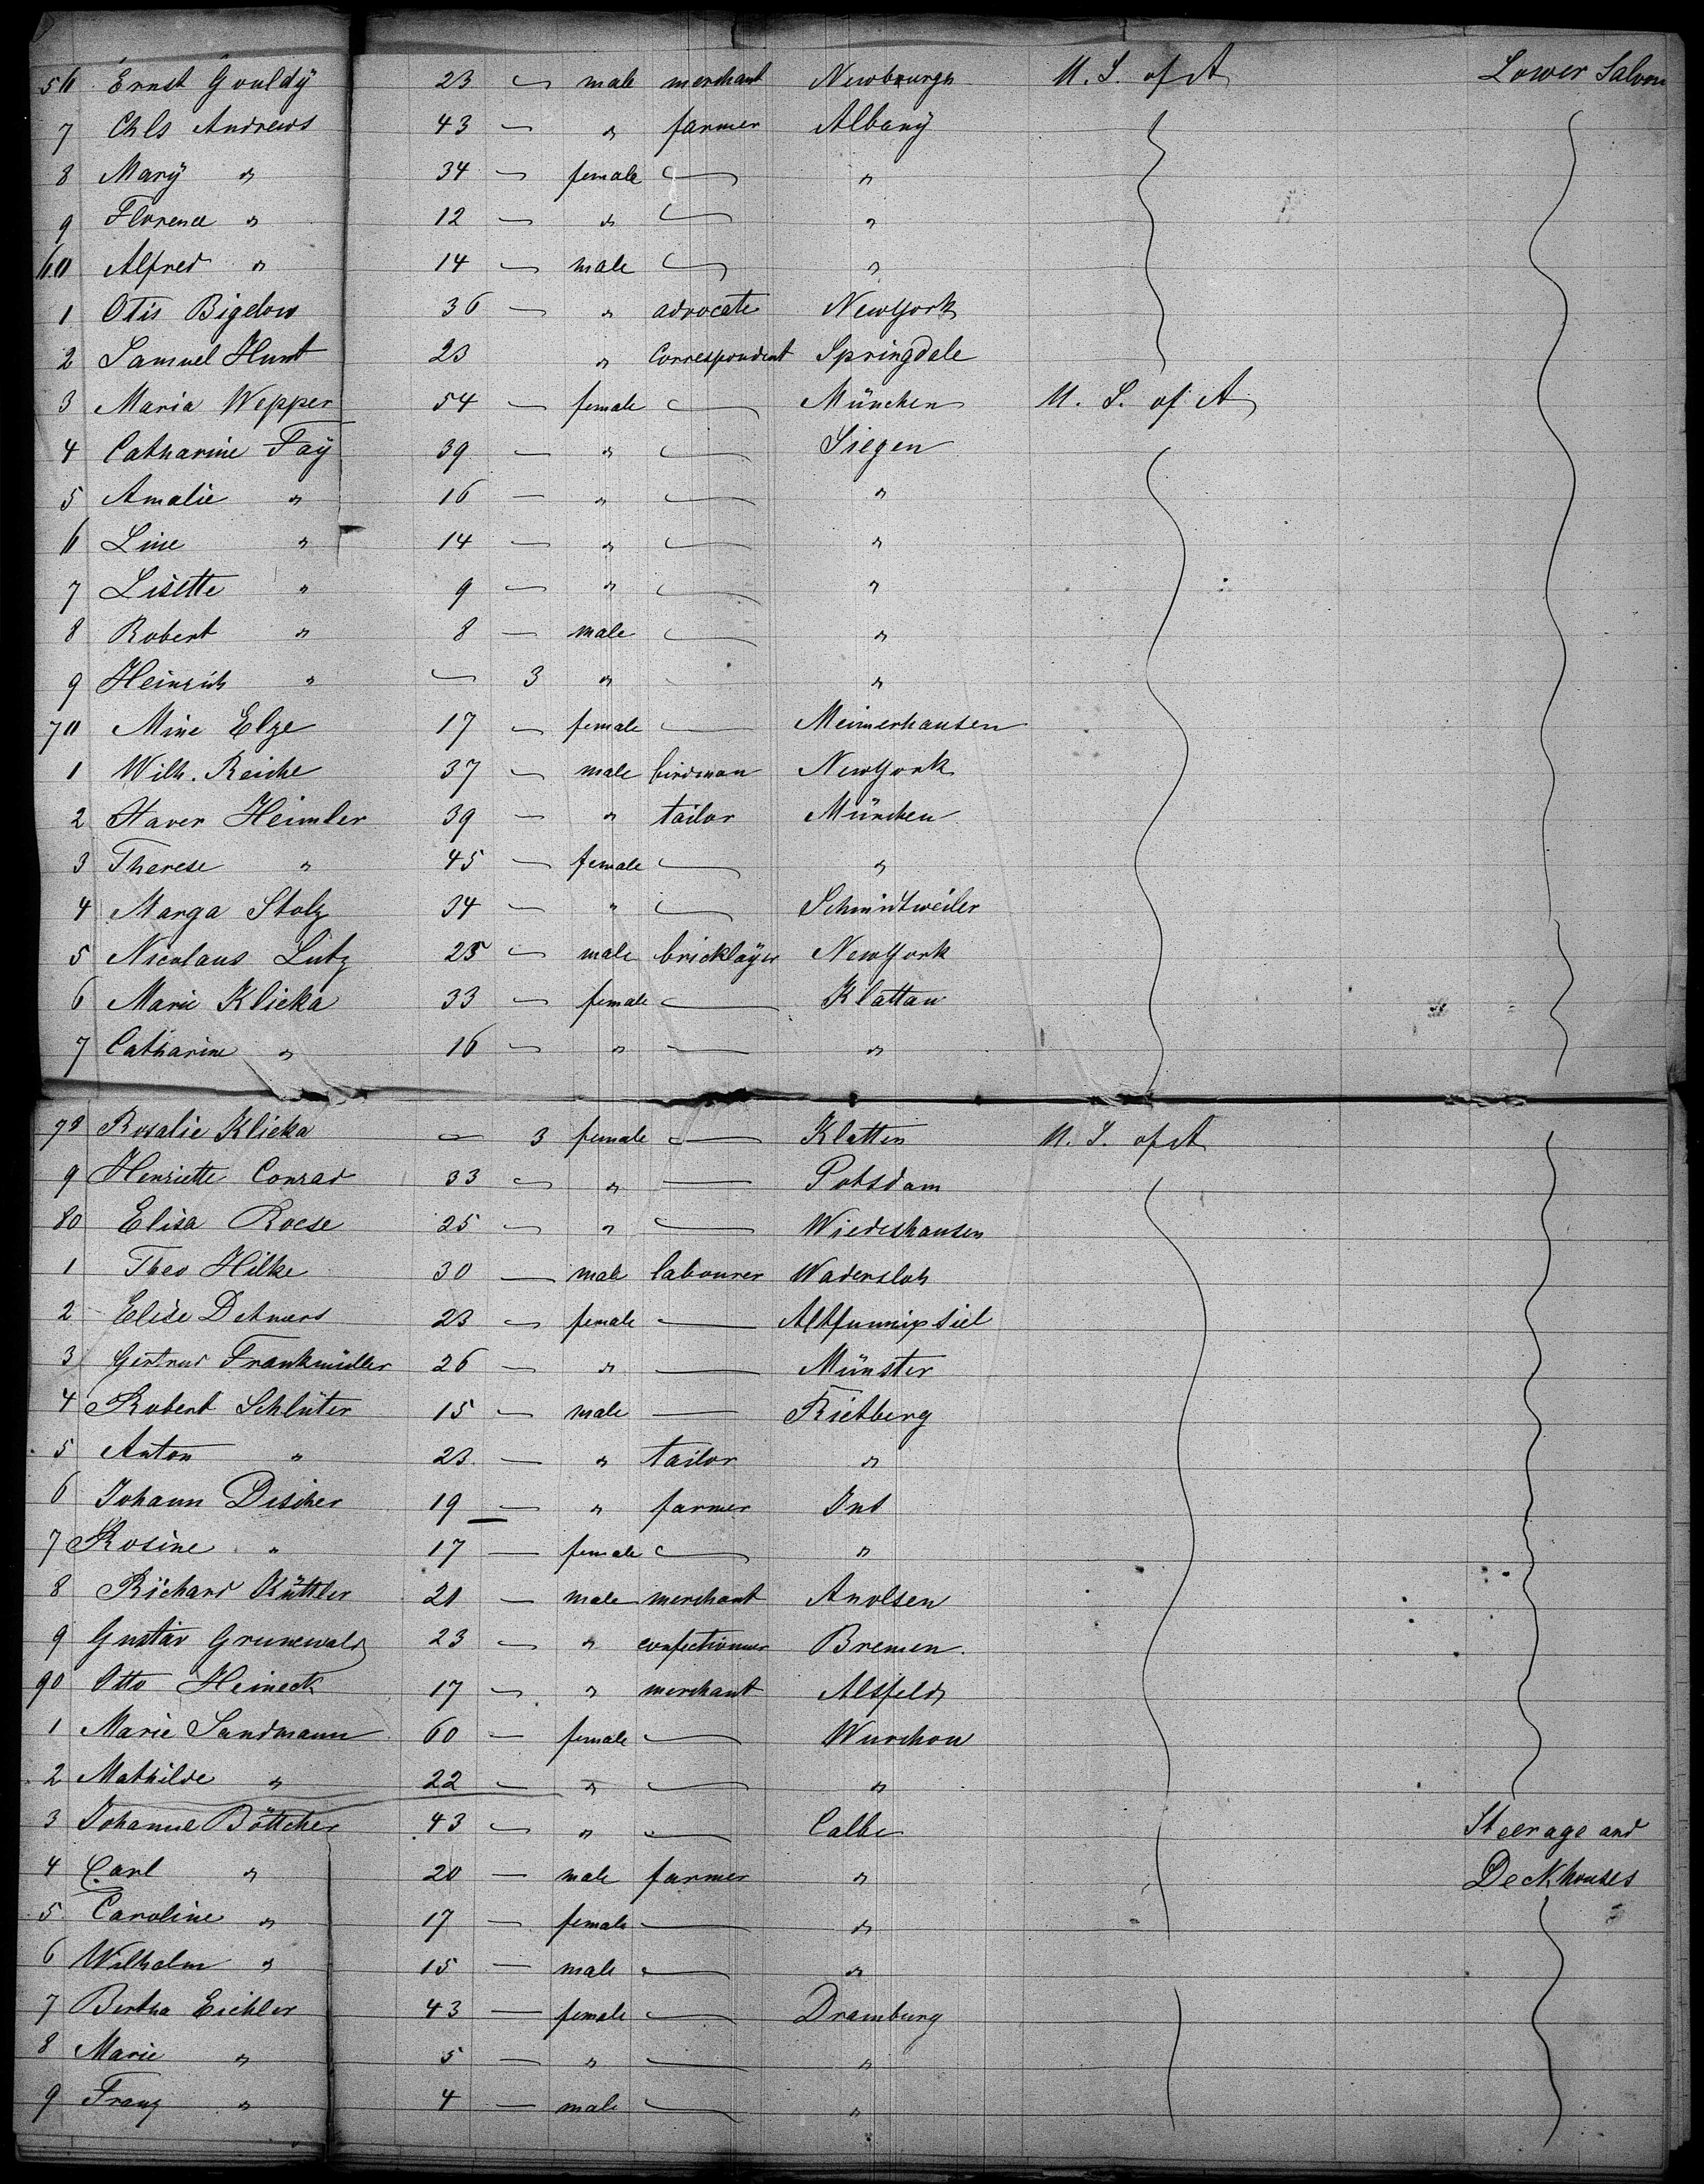 56 Ernst Gouldÿ 23 — male merchant Newburgh U. S. of A Lower Saloon
7 Chls Andrews 43 — " farmer Albanÿ
8 Marÿ " 34 — female — "
9 Florence " 12 — " — "
60 Alfred " 14 — male — "
1 Otis Bigelow 36 — " advocate NewYork
2 Samuel Hunt 23 " Correspondent Springdale
3 Maria Wepper 54 — female — München U. S. of A
4 Catharine Faÿ 39 — " — Siegen
5 Amalie " 16 — " — "
6 Line " 14 — " — "
7 Lisette " 9 — " — "
8 Robert " 8 — male — "
9 Heinrich " — 3 " — "
70 Mine Elze 17 — female — Meimerhausen
1 Wilh. Reiche 37 — male birdman NewYork
2 Xaver Heimler 39 — " tailor München
3 Therese " 45 — female — "
4 Marga Stolz 34 — " — Schmidtweiler
5 Nicolaus Lutz 25 — male bricklaÿer NewYork
6 Marie Klicka 33 — female — Klattau
7 Catharine " 16 — " — "
78 Rosalie Klicka — 3 female — Klatten U. S. of A
9 Henriette Conrad 33 — " — Potsdam
80 Elisa Roese 25 — " — Wiedeshausen
1 Theo Hilke 30 — male labourer Wadersloh
2 Elise Detmers 23 — female — Altfunnixsiel
3 Gertrud Frankmüller 26 — " — Münster
4 Robert Schlüter 15 — male — Rietberg
5 Anton " 23 — " tailor "
6 Johann Discher 19 — " farmer Ins
7 Rosine " 17 — female — "
8 Richard Küttler 21 — male merchant Arolsen
9 Gustav Grunewald 23 — " confectioner Bremen
90 Otto Heineck 17 — " merchant Alsfeld
1 Marie Sandmann 60 — female — Wurchow
2 Mathilde " 22 — " — "
3 Johanne Böttcher 43 — " — Calbe Steerage and
4 Carl " 20 — male farmer " Deckhouses
5 Caroline " 17 — female — "
6 Wilhelm " 15 — male — "
7 Bertha Eichler 43 — female — Dramburg
8 Marie " 5 — " — "
9 Franz " 4 — male — "